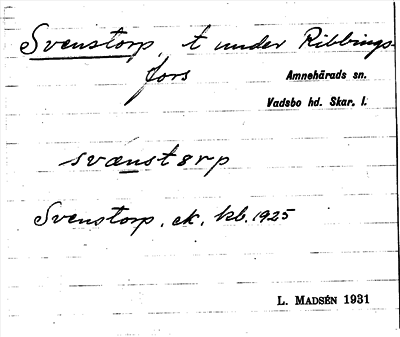 Svenstorp, t under Ribbings-
fors
Amnehärads sn.
Vadsbo hd. Skar. l.
svænstørp
Svenstorp, ek, kb. 1925
L. MADSÉN 1931